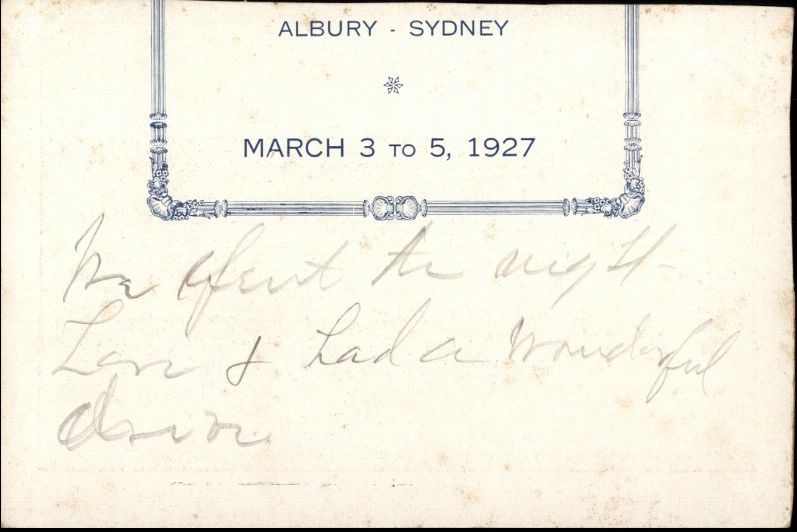 ALBURY - SYDNEY
MARCH 3 TO 5, 1927
We spent the night
here & had a wonderful
drive